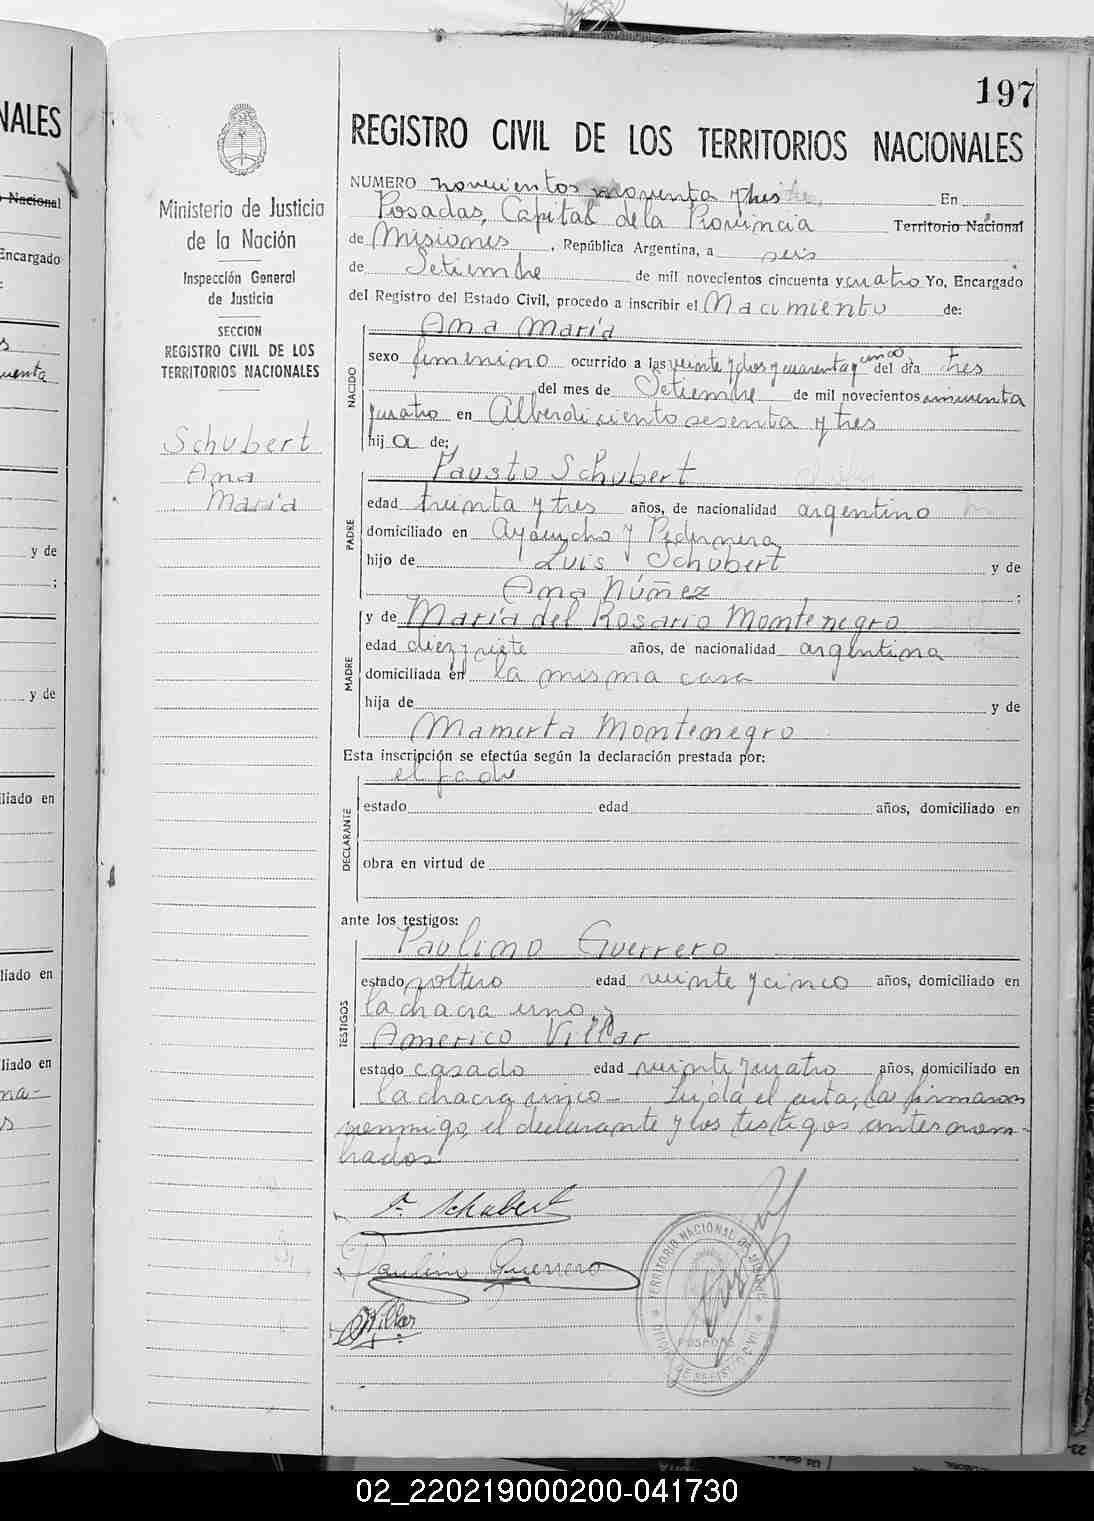 197
REGISTRO CIVIL DE LOS TERRITORIOS NACIONALES
NUMERO novecientos noventa y tres En
Posadas, Capital de la Provincia Territorio Nacional
de Misiones, República Argentina, a seis
de Setiembre de mil novecientos cincuenta y cuatro Yo, Encargado
del Registro del Estado Civil, procedo a inscribir el Nacimiento de:
Ana María
NACIDO
sexo femenino ocurrido a las veinte y dos y cuarenta y cinco del día tres
del mes de Setiembre de mil novecientos cincuenta
y cuatro en Alberdi ciento sesenta y tres
hij a de:
Fausto Schubert
PADRE
edad treinta y tres años, de nacionalidad argentino
domiciliado en Ayacucho y Pedernera
hijo de Luis Schubert y de
Ana Núñez ;
y de María del Rosario Montenegro
MADRE
edad diez y siete años, de nacionalidad argentina
domiciliada en la misma casa
hija de y de
Mamerta Montenegro
Esta inscripción se efectúa según la declaración prestada por:
el padre
DECLARANTE
estado edad años, domiciliado en
obra en virtud de
ante los testigos:
Paulino Guerrero
TESTIGOS
estado soltero edad veinte y cinco años, domiciliado en
la chacra uno y
Americo Villar
estado casado edad veinte y cuatro años, domiciliado en
la chacra cinco - Leída el acta, la firmaron
conmigo, el declarante y los testigos antes nom-
brados
F. Schubert
Paulino Guerrero
AVillar
TERRITORIO NACIONAL DE MISIONES
POSADAS
Ministerio de Justicia
de la Nación
Inspección General
de Justicia
SECCION
REGISTRO CIVIL DE LOS
TERRITORIOS NACIONALES
Schubert
Ana
María
NALES
Nacional
Encargado
y de
;
y de
liado en
liado en
liado en
02_220219000200-041730